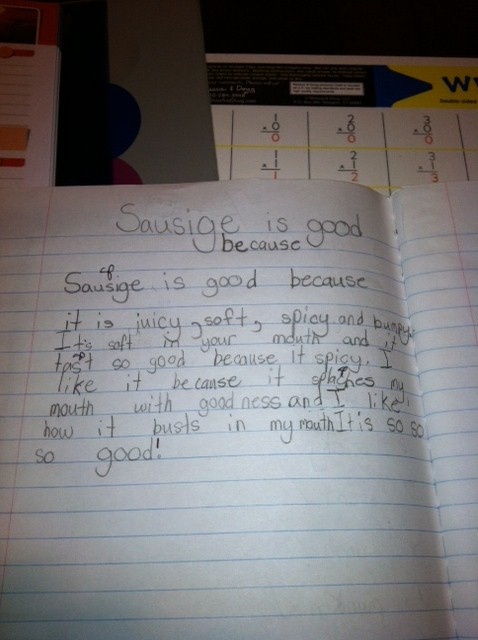 1
x 0
0
2
x 0
0
3
x 0
0
1
x 1
1
2
x 1
2
3
x 1
3
Sausige is good
because
Sausige is good because
it is juicy, soft, spicy and bumpy.
It's soft in your mouth and it
tast so good because It spicy. I
like it because it my
mouth with goodness and I like
how it busts in my mouth It's so so
so good!